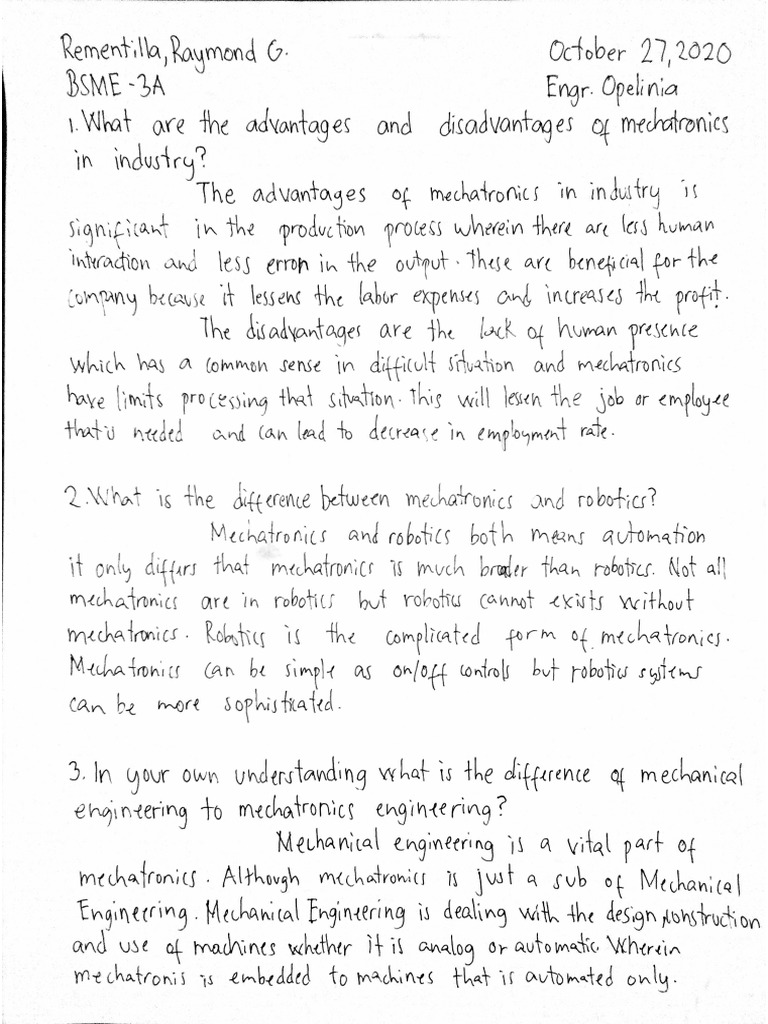 Rementilla, Raymond G. October 27, 2020
BSME - 3A Engr. Opelinia
1. What are the advantages and disadvantages of mechatronics
in industry?
The advantages of mechatronics in industry is
significant in the production process wherein there are less human
interaction and less error in the output. These are beneficial for the
company because it lessens the labor expenses and increases the profit.
The disadvantages are the lack of human presence
which has a common sense in difficult situation and mechatronics
have limits processing that situation. This will lessen the job or employee
that is needed and can lead to decrease in employment rate.
2. What is the difference between mechatronics and robotics?
Mechatronics and robotics both means automation
it only differs that mechatronics is much broader than robotics. Not all
mechatronics are in robotics but robotics cannot exists without
mechatronics. Robotics is the complicated form of mechatronics.
Mechatronics can be simple as on/off controls but robotics systems
can be more sophisticated.
3. In your own understanding what is the difference of mechanical
engineering to mechatronics engineering?
Mechanical engineering is a vital part of
mechatronics. Although mechatronics is just a sub of Mechanical
Engineering. Mechanical Engineering is dealing with the design, construction
and use of machines whether it is analog or automatic. Wherein
mechatronis is embedded to machines that is automated only.